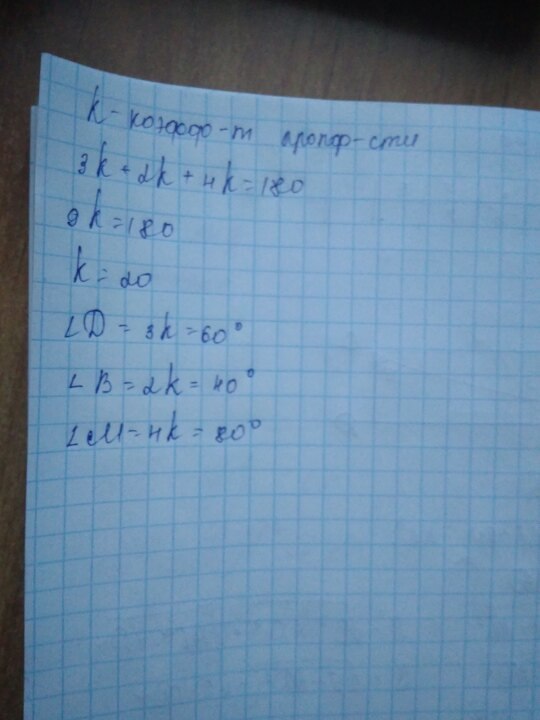 k - коэффо-т пропор-сти
3k + 2k + 4k = 180
9k = 180
k = 20
∠D = 3k = 60°
∠B = 2k = 40°
∠M = 4k = 80°